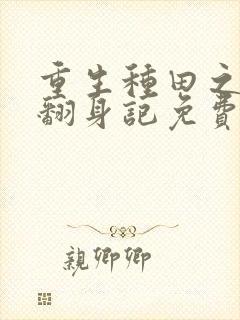 重生種田之
翻身記免費
親卿卿